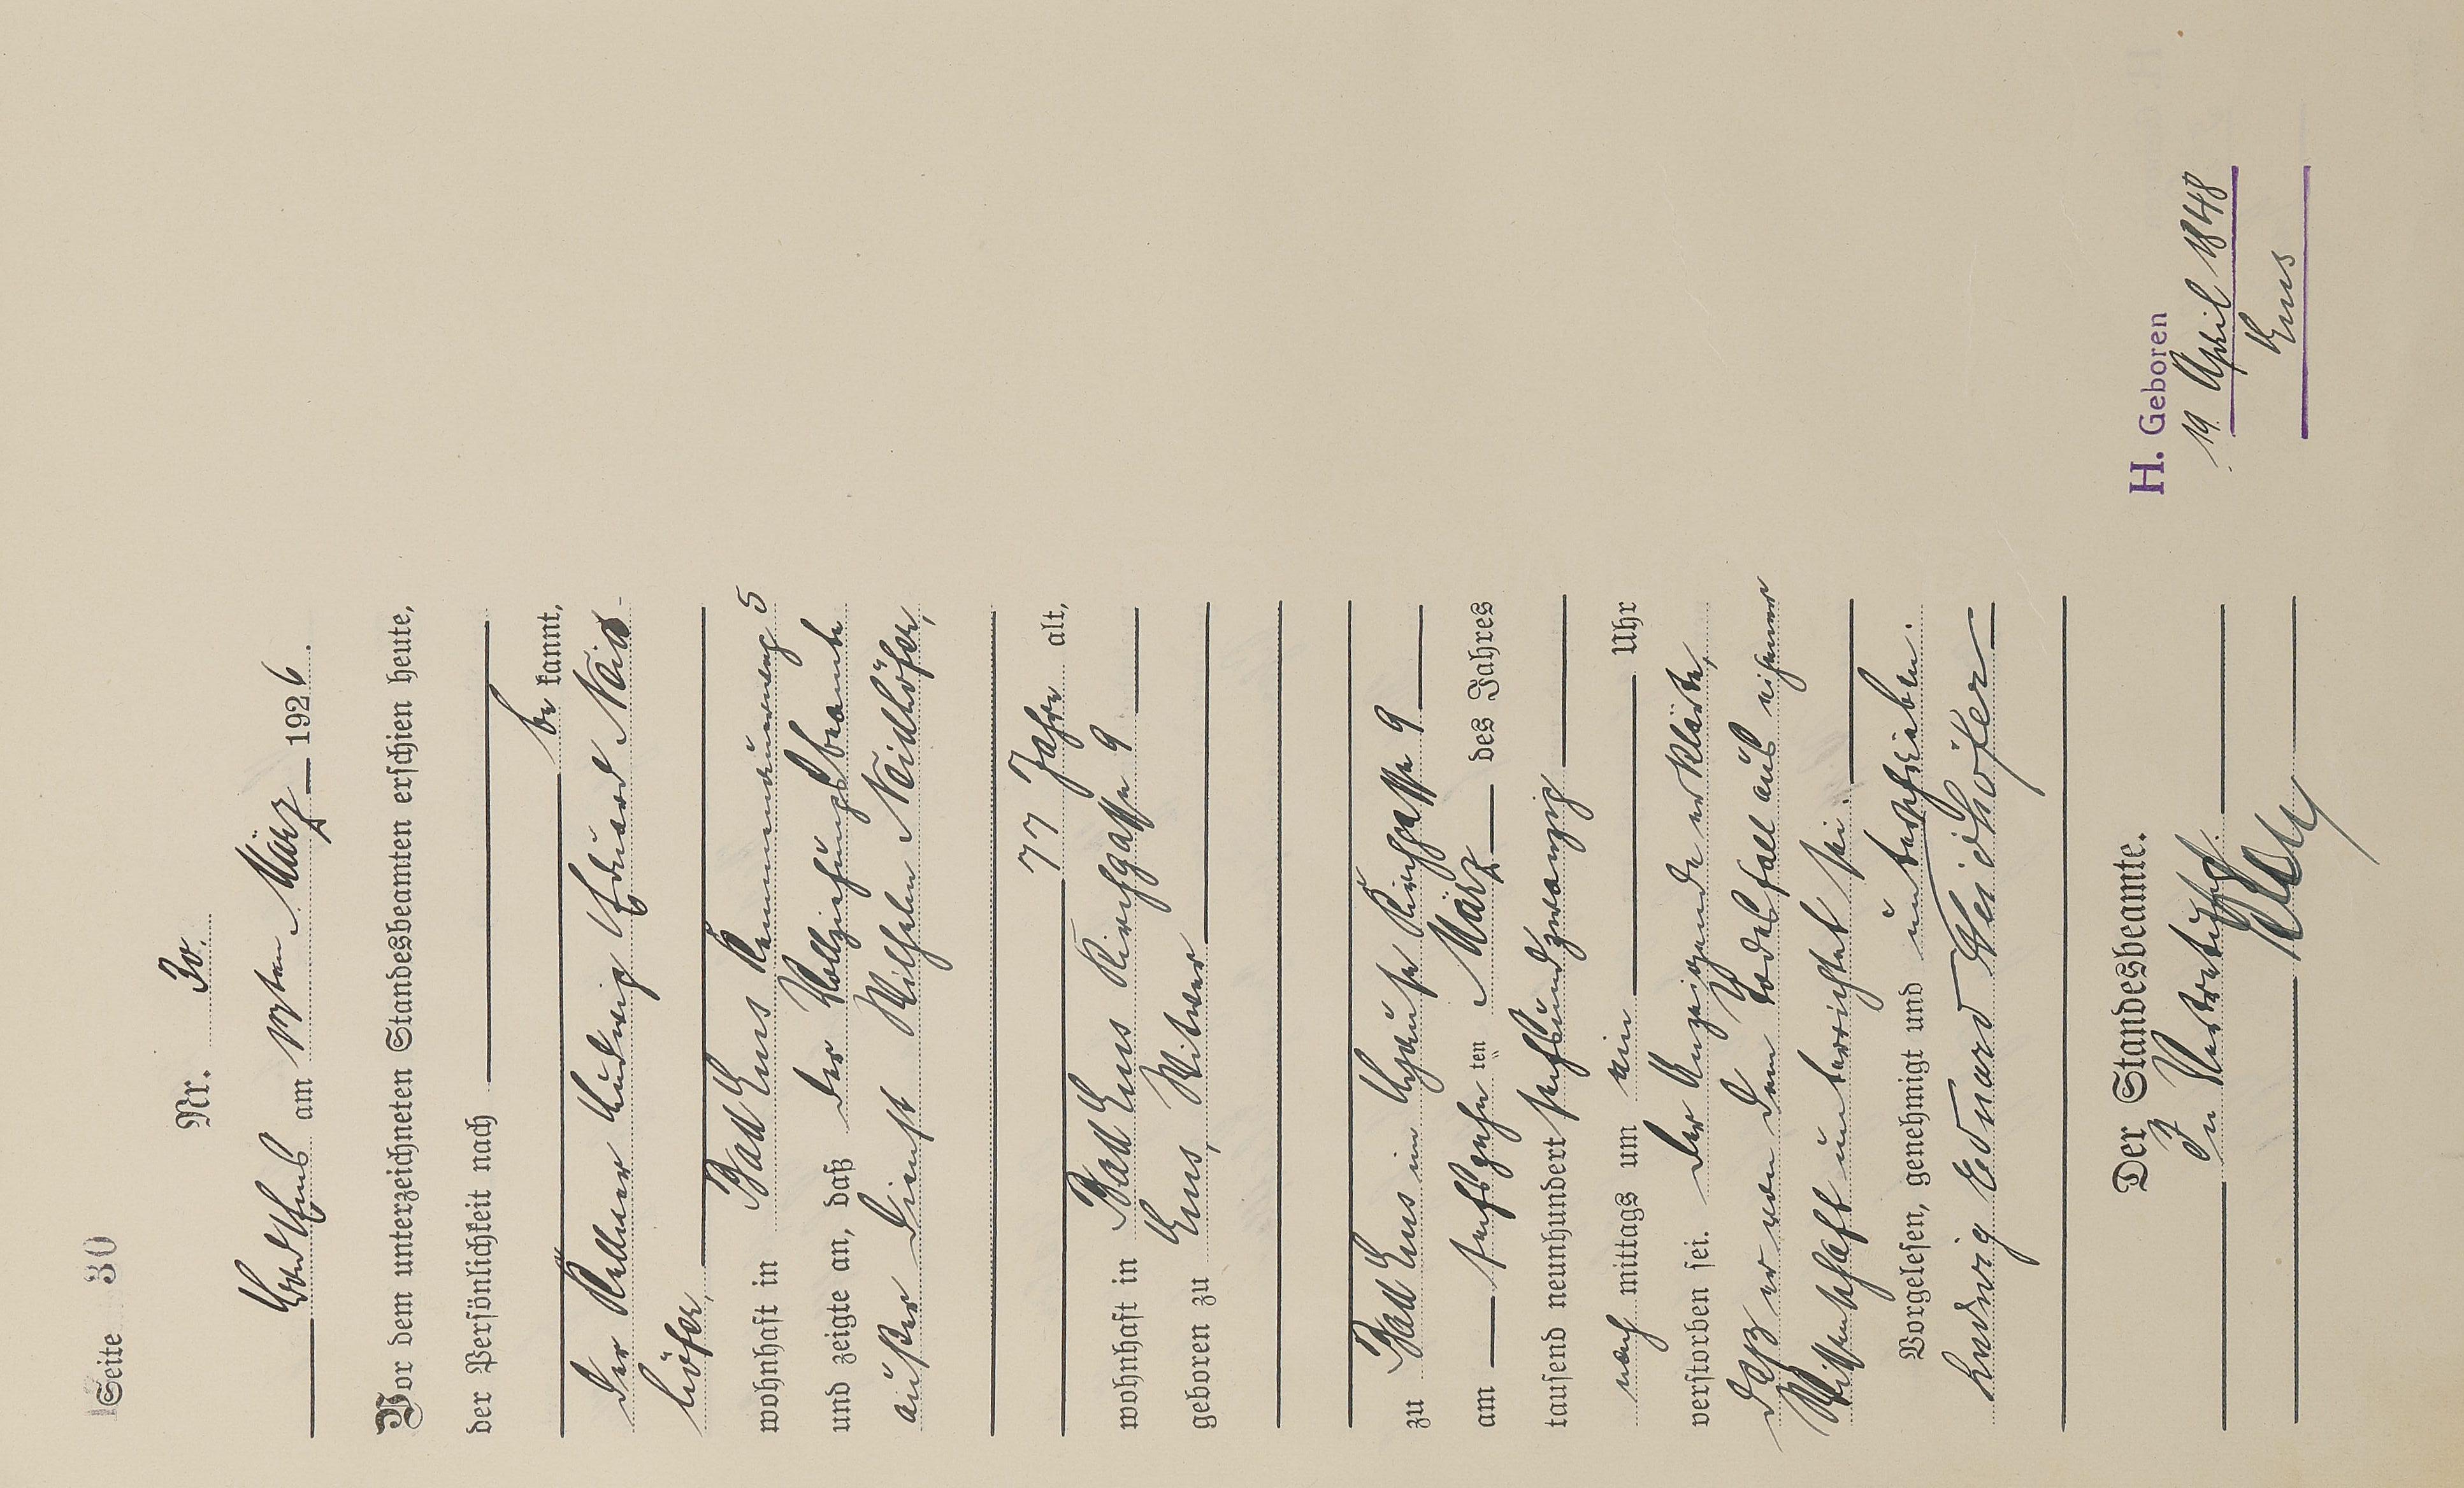 Seite 30
Nr. 30.
Bad Ems am 17ten März 1926.
Vor dem unterzeichneten Standesbeamten erschien heute,
der Persönlichkeit nach
be kannt,
der Kellner Ludwig Eduard Neid-
höfer,
wohnhaft in Bad Ems 5
und zeigte an, daß der Vollziehungsbeamte
außer Dienst Wilhelm Neidhöfer,
77 Jahre alt,
wohnhaft in Bad Ems Kirchgasse 9
geboren zu Ems, Witwer
zu Bad Ems im Hause Kirchgasse 9
am fünfzehn ten März des Jahres
tausend neunhundert sechsundzwanzig
nach mittags um ein Uhr
verstorben sei. Der Anzeigende erklärte,
daß er von dem Todesfall aus eigener
Wissenschaft unterrichtet sei.
Vorgelesen, genehmigt und unterschrieben.
Ludwig Eduard Neidhöfer
Der Standesbeamte.
In Vertretung
H. Geboren
19. April 1848
Ems